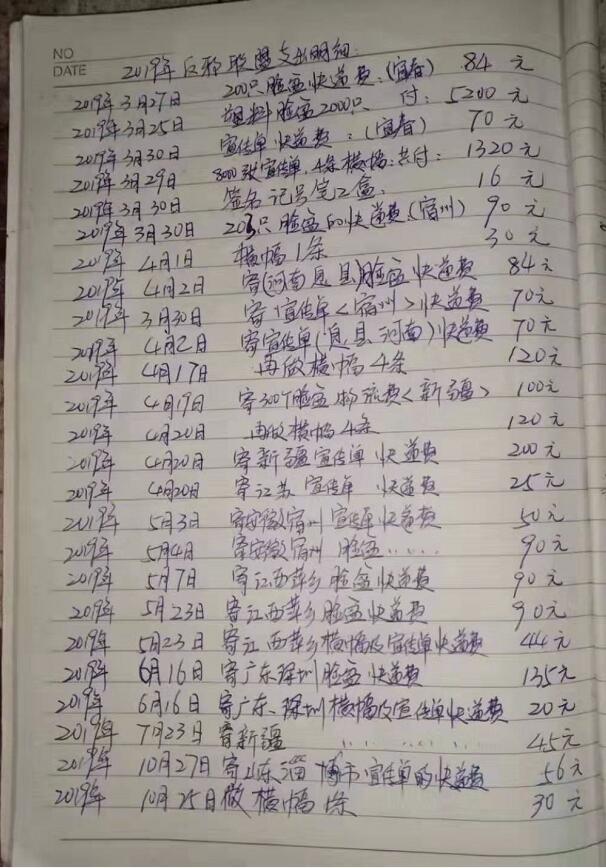 NO
DATE
2019年反邪联盟支出明细:
2019年3月27日 200只脸盆快递费:(宜春) 84元
2019年3月25日 塑料脸盆2000只 付: 5200元
2019年3月30日 宣传单快递费:(宜春) 70元
2019年3月29日 8000张宣传单,4条横幅:共付: 1320元
2019年3月30日 签名记号笔2盒. 16元
2019年3月30日 203只脸盆的快递费.(宿州) 90元
2019年4月1日 横幅1条 30元
2019年4月2日 寄(河南息县)脸盆快递费 84元
2019年3月30日 寄宣传单<宿州>快递费 70元
2019年4月2日 寄宣传单(息县河南)快递费 70元
2019年4月17日 再做横幅4条 120元
2019年4月19日 寄300个脸盆物流费<新疆> 100元
2019年4月20日 再做横幅4条 120元
2019年4月20日 寄新疆宣传单快递费 200元
2019年4月20日 寄江苏宣传单快递费 25元
2019年5月3日 寄安徽宿州宣传单快递费 50元
2019年5月4日 寄安徽宿州脸盆...... 90元
2019年5月7日 寄江西萍乡脸盆快递费 90元
2019年5月23日 寄江西萍乡脸盆快递费 90元
2019年5月23日 寄江西萍乡横幅及宣传单快递费 44元
2019年6月16日 寄广东深圳脸盆快递费 135元
2019年6月16日 寄广东、深圳横幅及宣传单快递费 20元
2019年7月23日 寄新疆 ...... 45元
2019年10月27日 寄山东淄博市宣传单的快递费 56元
2019年10月25日做横幅1条 30元